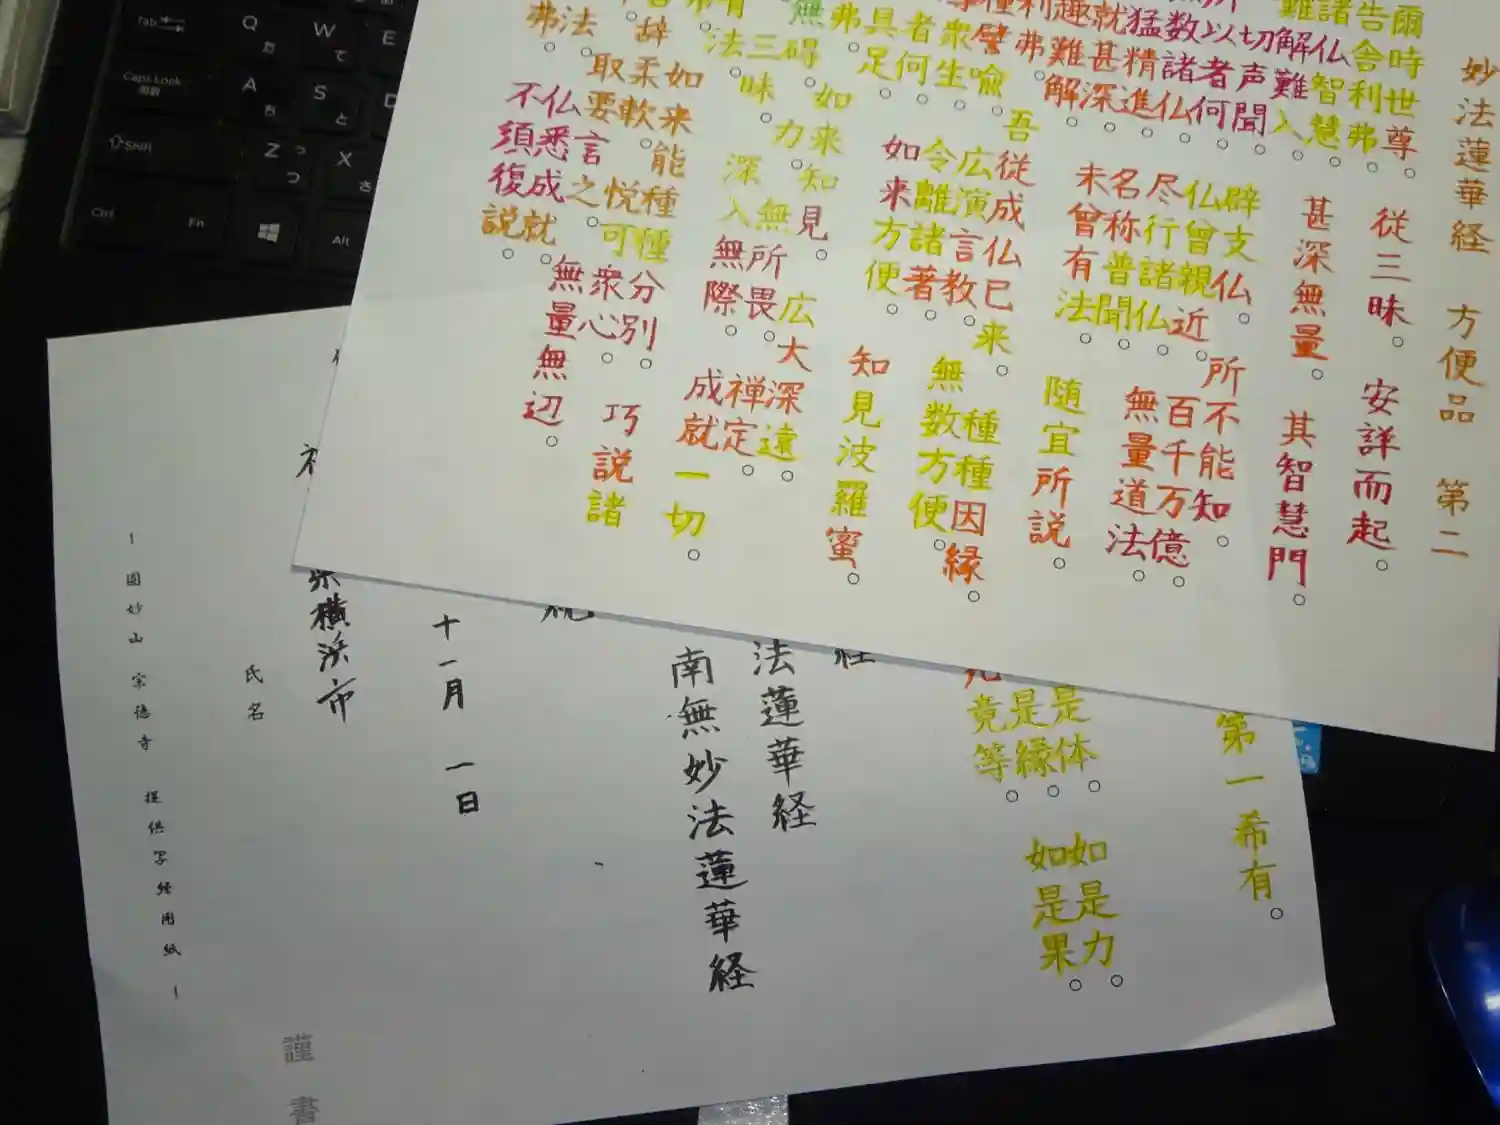 妙法蓮華経 方便品 第二
爾時世尊。 従三昧。 安詳而起。
告舎利弗。
諸仏智慧。 甚深無量。 其智慧門。
難解難入。
切声聞 辟支仏。 所不能知。
所以者何。 仏曾親近。 百千万億
数諸仏。 尽行諸仏。 無量道法。
猛精進。 名称普聞。
就甚深。 未曾有法。
趣難解。 随宜所説。
利弗 吾従成仏已来。 種種因縁。
種譬喩。 広演言教。 無数方便。
衆生。 令離諸著。
者何。 如来方便。 知見波羅蜜。
具足。
弗 如来知見。 広大深遠。
無碍 力。 無所畏。 禅定。
三昧。 深入無際。 成就一切。
法。
如来能種種分別。 巧説諸
辞柔軟。 悦可衆心。
法
取要言之。 無量無辺。
弗
仏悉成就。
不須復説。
第一希有。
是体。 如是力。
是縁。 如是果。
竟等。
経
法蓮華経
南無妙法蓮華経
十一月 一日
横浜市
氏名
圓妙山 宗徳寺 提供写経用紙
謹書
Tab
Q た
W て
E
Caps Lock
A ち
S と
D
Shift
Z つ っ
X さ
Ctrl
Fn
Alt